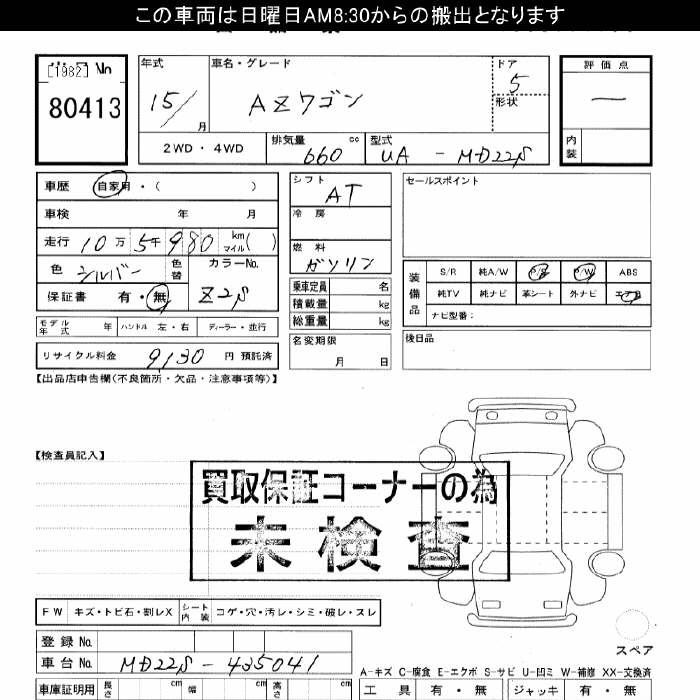 この車両は日曜日AM8:30からの搬出となります
[1982] No
80413
年式
15/
月
車名・グレード
AZワゴン
ドア
5
形状
評価点
—
内装
2WD・4WD
排気量
660 cc
型式
UA - MD22S
車歴 自家用・( )
車検 年 月
走行 10万5千980 km マイル( )
色 シルバー 色替
カラーNo.
Z2S
保証書 有・無
モデル年式 年 ハンドル 左・右 ディーラー・並行
リサイクル料金 9130 円 預託済
シフト
AT
冷房
燃料
ガソリン
乗車定員 名
積載量 kg
総重量 kg
名変期限
月 日
セールスポイント
装備品
S/R 純A/W P/S P/W ABS
純TV 純ナビ 革シート 外ナビ エアB
ナビ型番:
後日品
【出品店申告欄(不良箇所・欠品・注意事項等)】
【検査員記入】
買取保証コーナーの為
未検査
FW キズ・トビ石・割レX シート内装 コゲ・穴・汚レ・シミ・破レ・スレ
スペア
登録No.
車台No. MD22S-435041
A-キズ C-腐食 E-エクボ S-サビ U-凹ミ W-補修 XX-交換済
車庫証明用 長さ cm 幅 cm 高さ cm
工具 有・無 ジャッキ 有・無